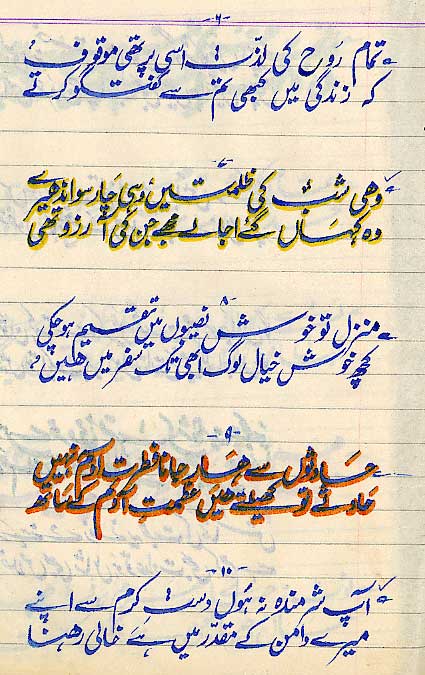 ۶
تمام روح کی لذت اسی پر تھی موقوف
کہ زندگی میں کبھی تم سے گفتگو کرتے
۷
وہی شب کی ظلمتیں وہی چار سو اندھیرے
وہ کہاں گئے اجالے مجھے جن کی آرزو تھی
۸
منزل تو خوش نصیبوں میں تقسیم ہو چکی
کچھ خوش خیال لوگ ابھی تک سفر میں ہیں
۹
حادثوں سے ہار جانا فطرت آدم نہیں
حادثے تو کھیلتے ہیں عظمتِ آدم کے ساتھ
۱۰
آپ شرمندہ نہ ہوں دستِ کرم سے اپنے
میرے دامن کے مقدّر میں ہے خالی رہنا